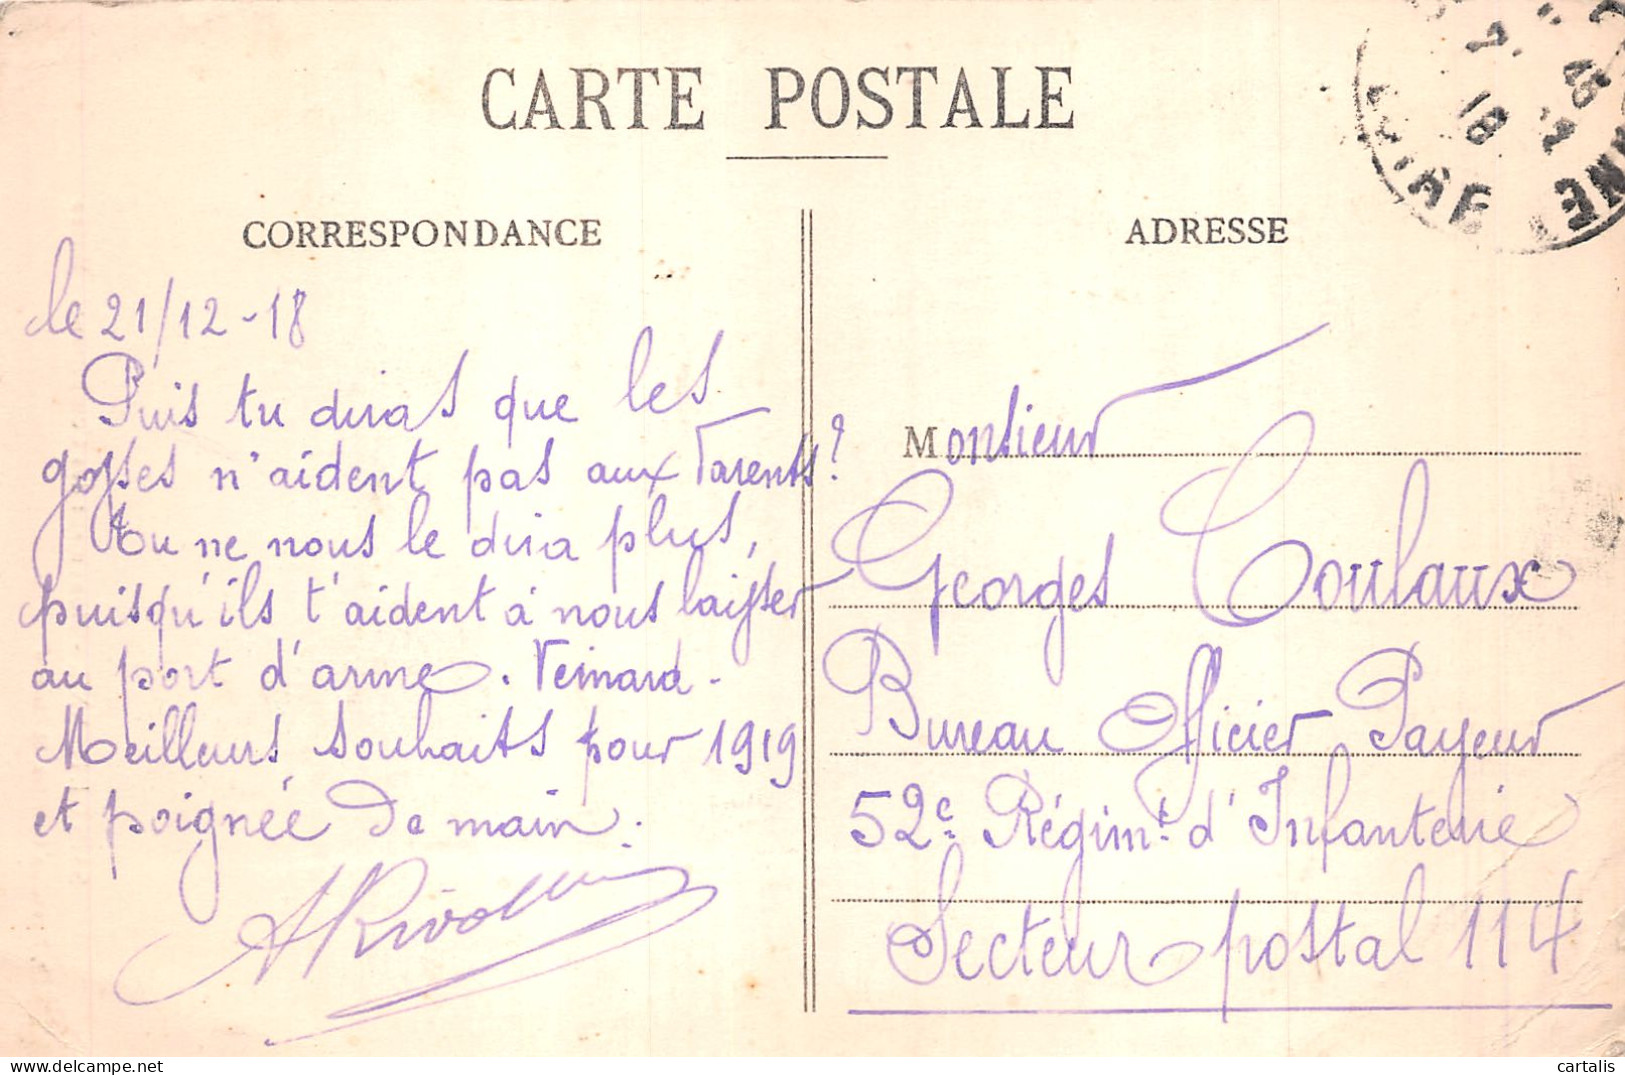 CARTE POSTALE
CORRESPONDANCE
le 21/12-18
Puis tu diras que les
gosses n'aident pas aux Parents?
Tu ne nous le dira plus,
puisqu'ils t'aident à nous laisser
au port d'arme. Veinard-
Meilleurs souhaits pour 1919
et poignée de main.
ADRESSE
Monsieur
Georges Coulaux
Bureau Officier Payeur
52e Régimt d'Infanterie
Secteur postal 114
cartalis